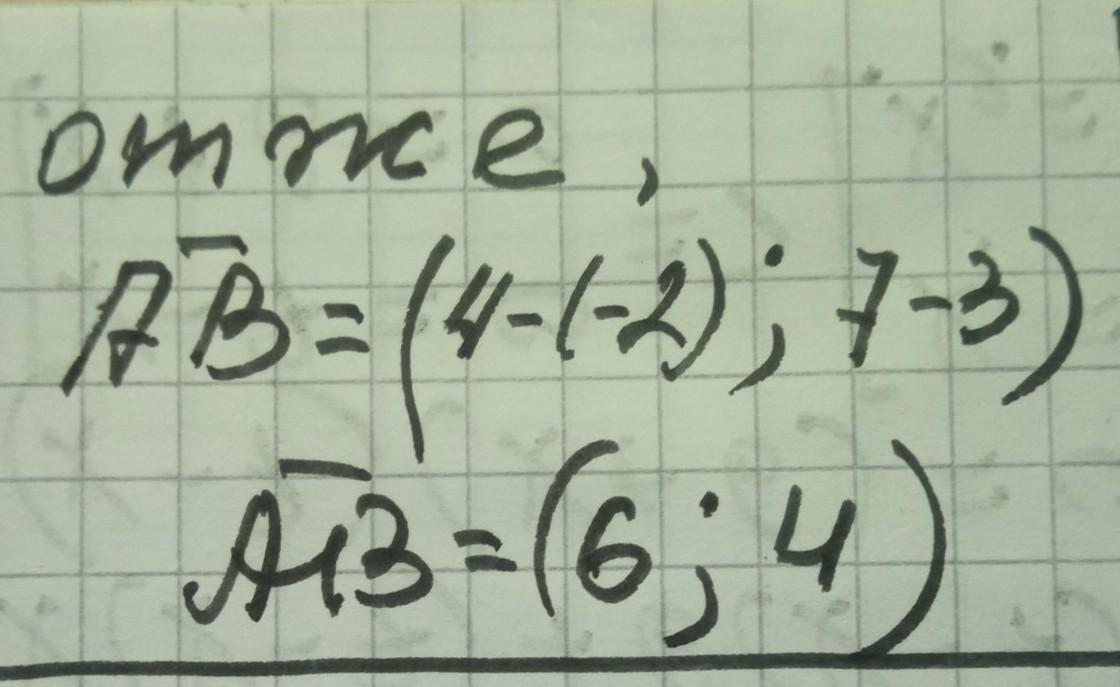 отже,
A̅B̅ = (4-(-2); 7-3)
A̅B̅ = (6; 4)